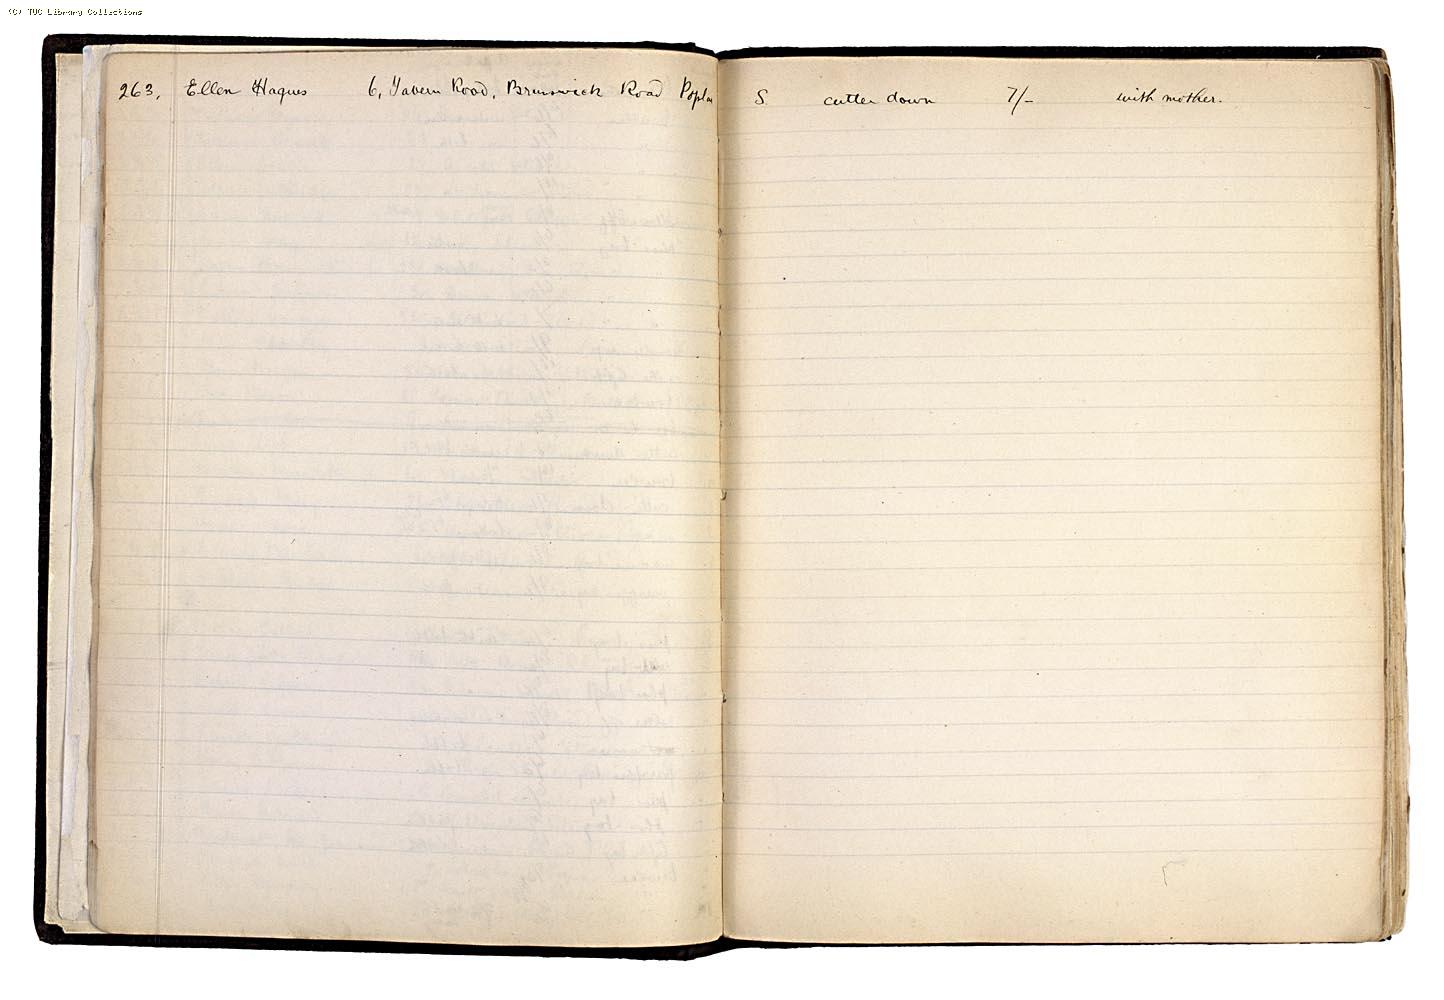 (C) TUC Library Collections
263, Ellen Haques 6, Yavern Road, Brunswick Road Poplar S cutter down 7/- with mother.